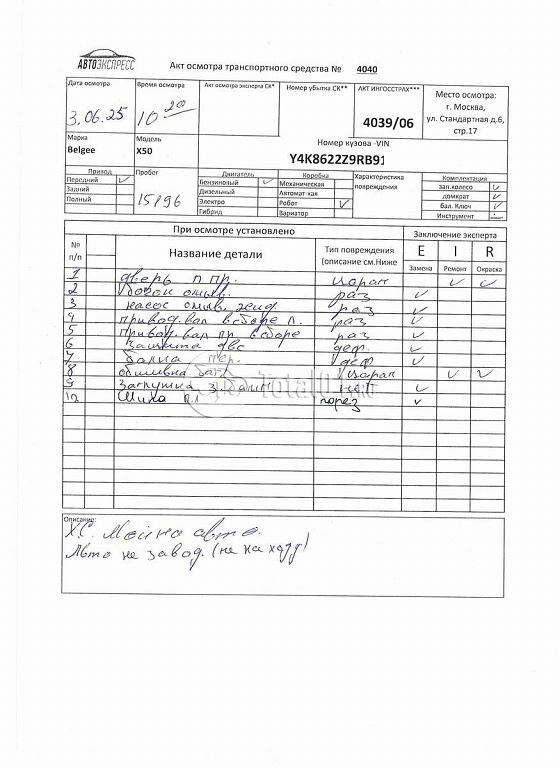 АВТОЭКСПРЕСС
Акт осмотра транспортного средства № 4040
Дата осмотра
Время осмотра
Акт осмотра эксперта СК*
Номер убытка СК**
АКТ ИНГОССТРАХ***
Место осмотра:
г. Москва,
ул. Стандартная д.6,
стр.17
3.06.25
10 20
4039/06
Марка
Модель
Номер кузова -VIN
Belgee
X50
Y4K8622Z9RB91
Привод
Пробег
Двигатель
Коробка
Характеристика
повреждения
Комплектация
Передний
Бензиновый
Механическая
зап.колесо
Задний
Дизельный
Автомат-кая
домкрат
Полный
15196
Электро
Робот
бал. Ключ
Гибрид
Вариатор
Инструмент
При осмотре установлено
Заключение эксперта
№
п/п
Название детали
Тип повреждения
(описание см.Ниже
E I R
Замена Ремонт Окраска
1 дверь п пр. царап
2 бочок омыв. раз
3 насос омыв. жид раз
4 привод.вал в сборе л. раз
5 привод вал пр. в сборе раз
6 защита двс деф.
7 балка пер. деф
8 обшивка царап
9 Заглушка з. нет
10 Шина п.л порез
TotalD.ru
Описание:
Х.С. Мойка авто.
Авто не завод. (не на ходу)